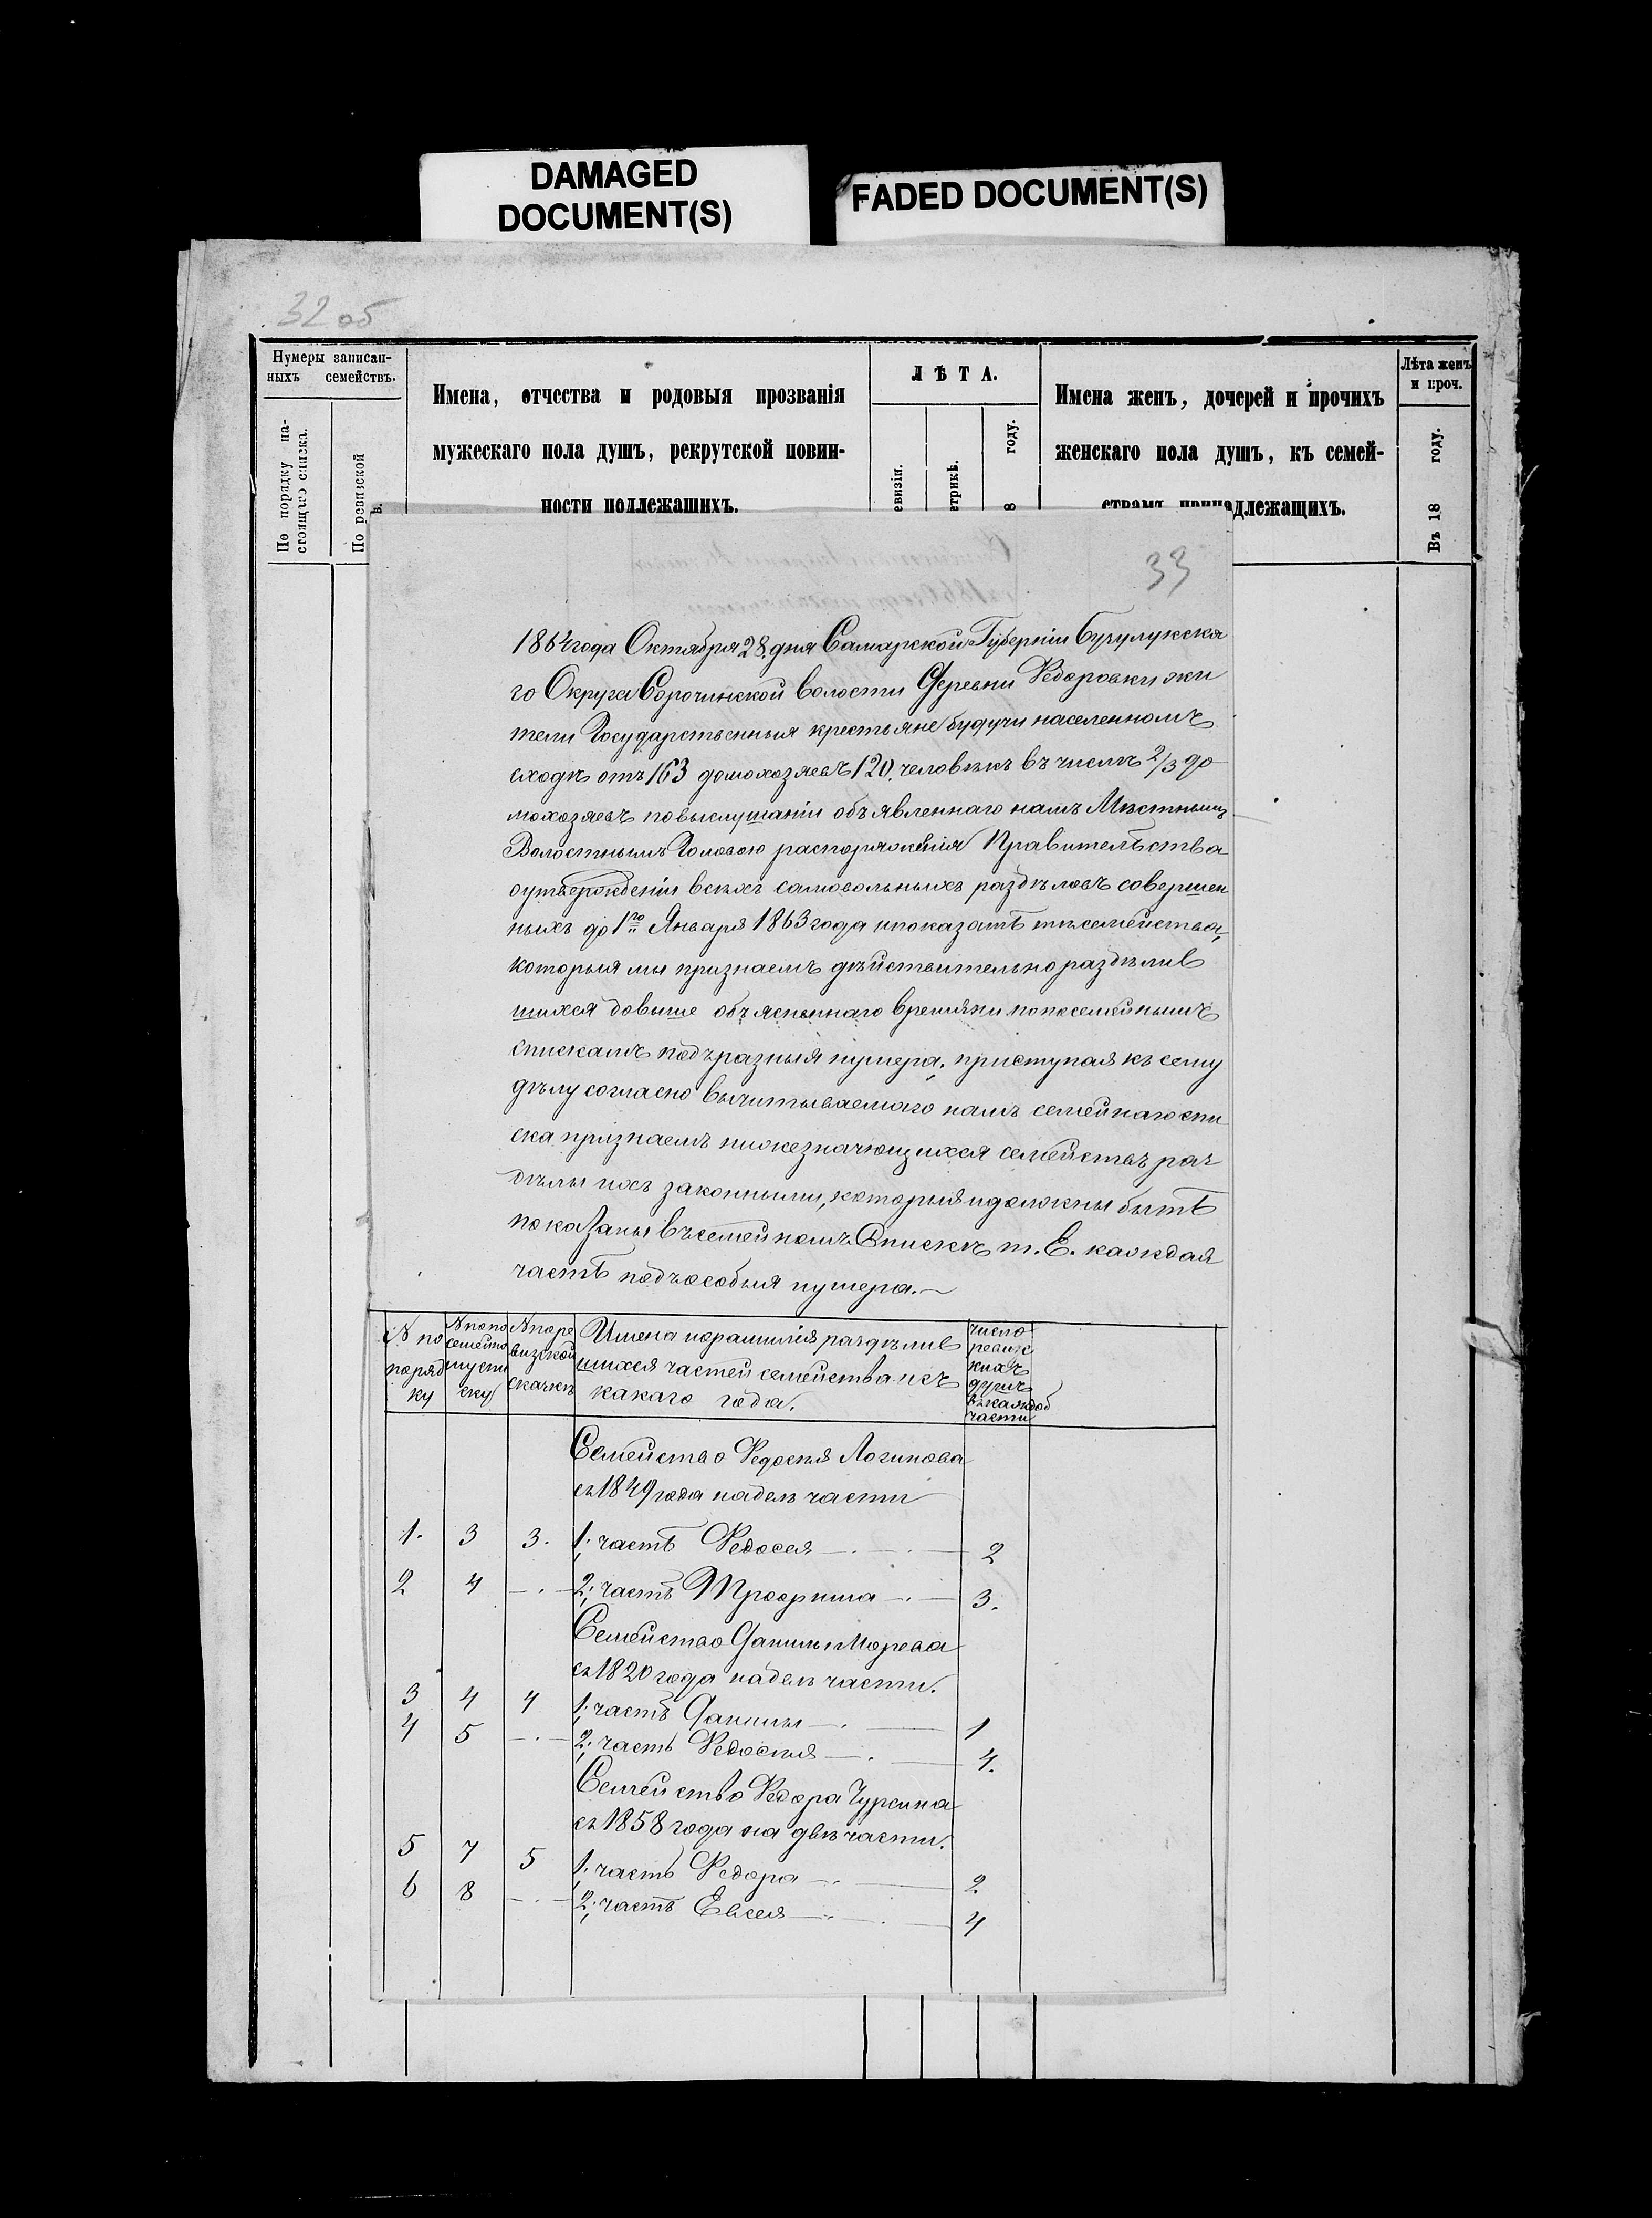 DAMAGED
DOCUMENT(S)
FADED DOCUMENT(S)
32 об
Нумеры записан-
ныхъ семействъ.
По порядку на-
стоящаго списка.
По ревизской
Имена, отчества и родовыя прозванія
мужескаго пола душъ, рекрутской повин-
ности подлежащихъ.
ЛѢТА.
евизіи.
етрикѣ.
8 году.
Имена женъ, дочерей и прочихъ
женскаго пола душъ, къ семей-
ствамъ принадлежащихъ.
Лѣта женъ
и проч.
Въ 18 году.
33
1864 года Октября 28. дня Самарской Губерніи Бузулукска
го Округа Сорочинской волости Деревни Ѳедоровки жи
тели Государственныя крестьяне будучи населенномъ
сходѣ отъ 163 домохозяевъ 120. человѣкъ въ числѣ 2/3 до
мохозяевъ повыслушаніи объявленнаго намъ Мѣстнымъ
Волостнымъ Головою распоряженія Правительства
оутвержденіи всѣхъ самовольныхъ раздѣловъ совершен
ныхъ до 1го Января 1863 года ипоказать тѣсемейства,
которыя мы признаемъ дѣйствительно раздѣлив
шихся довыше объясненнаго времяни попосемейнымъ
спискамъ подъразныя нумера. приступая къ сему
дѣлу согласно вычитываемаго намъ семейнаго спи
ска признаемъ нижезначющихся семействъ раз
дѣлы ихъ законными, которыя идолжны быть
показаны въсемейномъ Спискѣ т. Е. каждая
часть подъособыя нумера.—
№ по
поряд
ку
№ попо
семейно
му спи
ску
№ поре
визской
сказкѣ
Имена ифамилія раздѣлив
шихся частей семейства исъ
какаго года.
число
ревиж
кихъ
душъ
въкаждой
части
Семейство Ѳедосѣя Логинова
съ 1849 года надвѣ части
1. 3 3. 1; часть Ѳедосея —.— 2
2 4 —.— 2; часть Трофима —.— 3.
Семейство Данилы Морева
съ 1820 года надвѣ части.
3 4 4 1; часть Данилы —.— 1
4 5 —.— 2; часть Ѳедосѣя —.— 4.
Семейство Ѳедора Чурсина
съ 1858 года на двѣ части.
5 7 5 1; часть Ѳедора —.— 2.
6 8 —.— 2; часть Евсея —.— 4